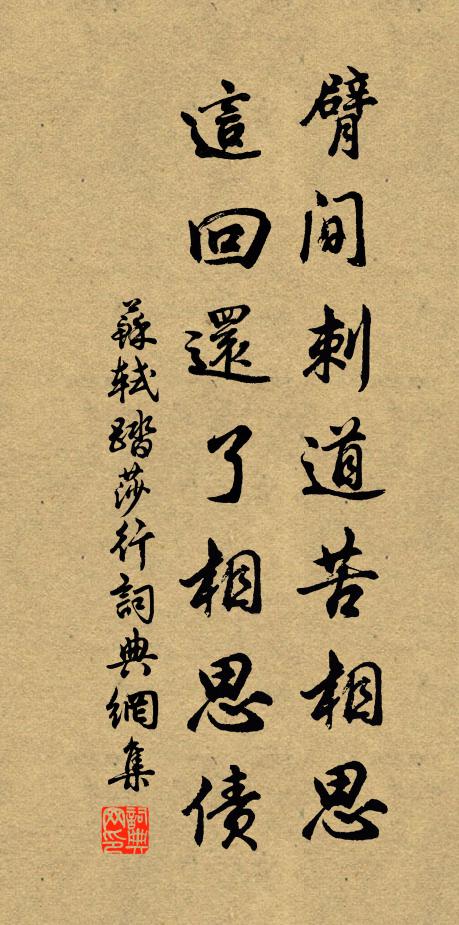 臂間刺道苦相思
這回還了相思債
蘇軾踏莎行詞典網集
詞典網印